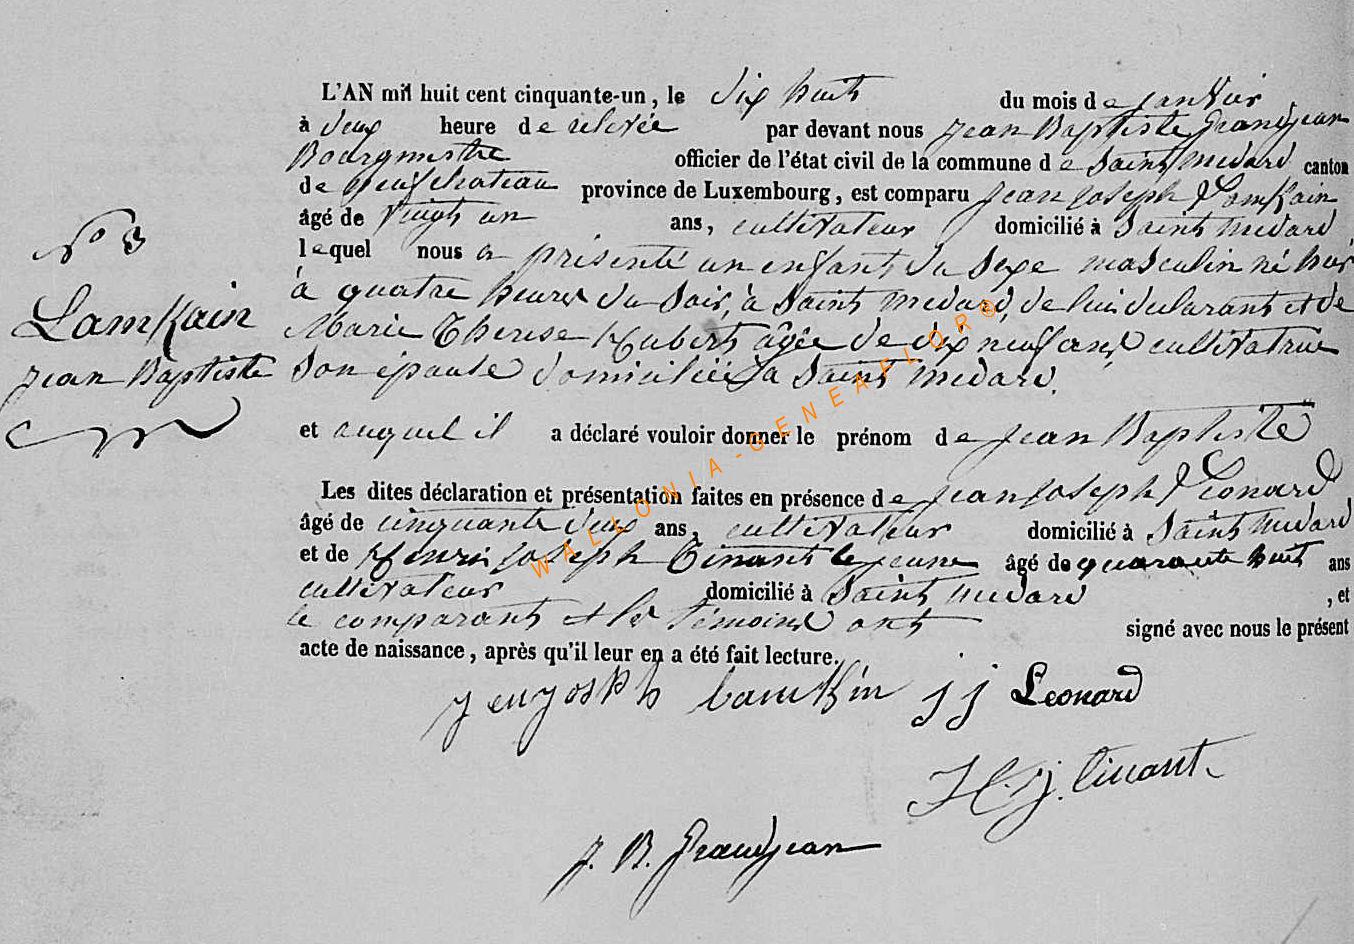 L'AN mil huit cent cinquante-un, le dix huit du mois de janvier,
à deux heure de relevée par devant nous Jean Baptiste Grandjean
Bourgmestre officier de l'état civil de la commune de Saint medard canton
de neufchateau province de Luxembourg, est comparu jean joseph Lamkain
âgé de vingt un ans, cultivateur domicilié à Saint medard,
lequel nous a présenté un enfant du sexe masculin né hier
à quatre heures du soir, à Saint medard, de lui declarant et de
Marie Therese Hubert âgée de dix neuf ans cultivatrice
son épouse domiciliée à Saint medard.
et auquel il a déclaré vouloir donner le prénom de jean Baptiste
Les dites déclaration et présentation faites en présence de jean joseph Léonard,
âgé de cinquante deux ans, cultivateur domicilié à Saint medard
et de Henri joseph Tinant le jeune âgé de quarante huit ans
cultivateur domicilié à Saint medard, et
le comparant et les témoins ont signé avec nous le présent
acte de naissance, après qu'il leur en a été fait lecture.
N° 3
Lamkain
jean Baptiste
j j Leonard
H. j. tinant
J. B. Grandjean
WALLONIA-GENEAFLOR®